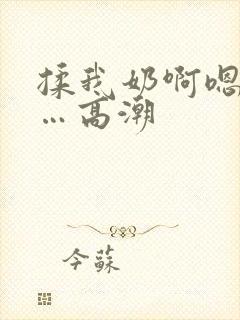 揉我奶啊嗯
…高潮
今蘇